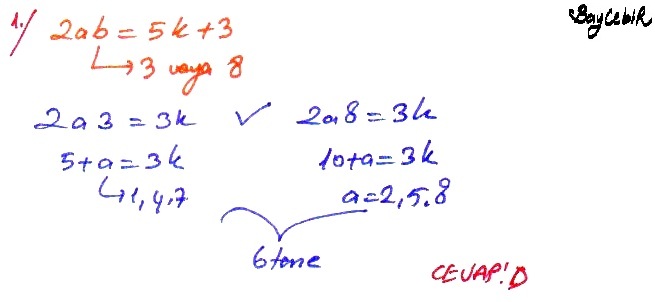 1./ 2ab = 5k + 3
BayCebiR
↳ 3 veya 8
2a3 = 3k ✓ 2a8 = 3k
5 + a = 3k 10 + a = 3k
↳ 1, 4, 7 a = 2, 5, 8
6 tane
CEVAP: D